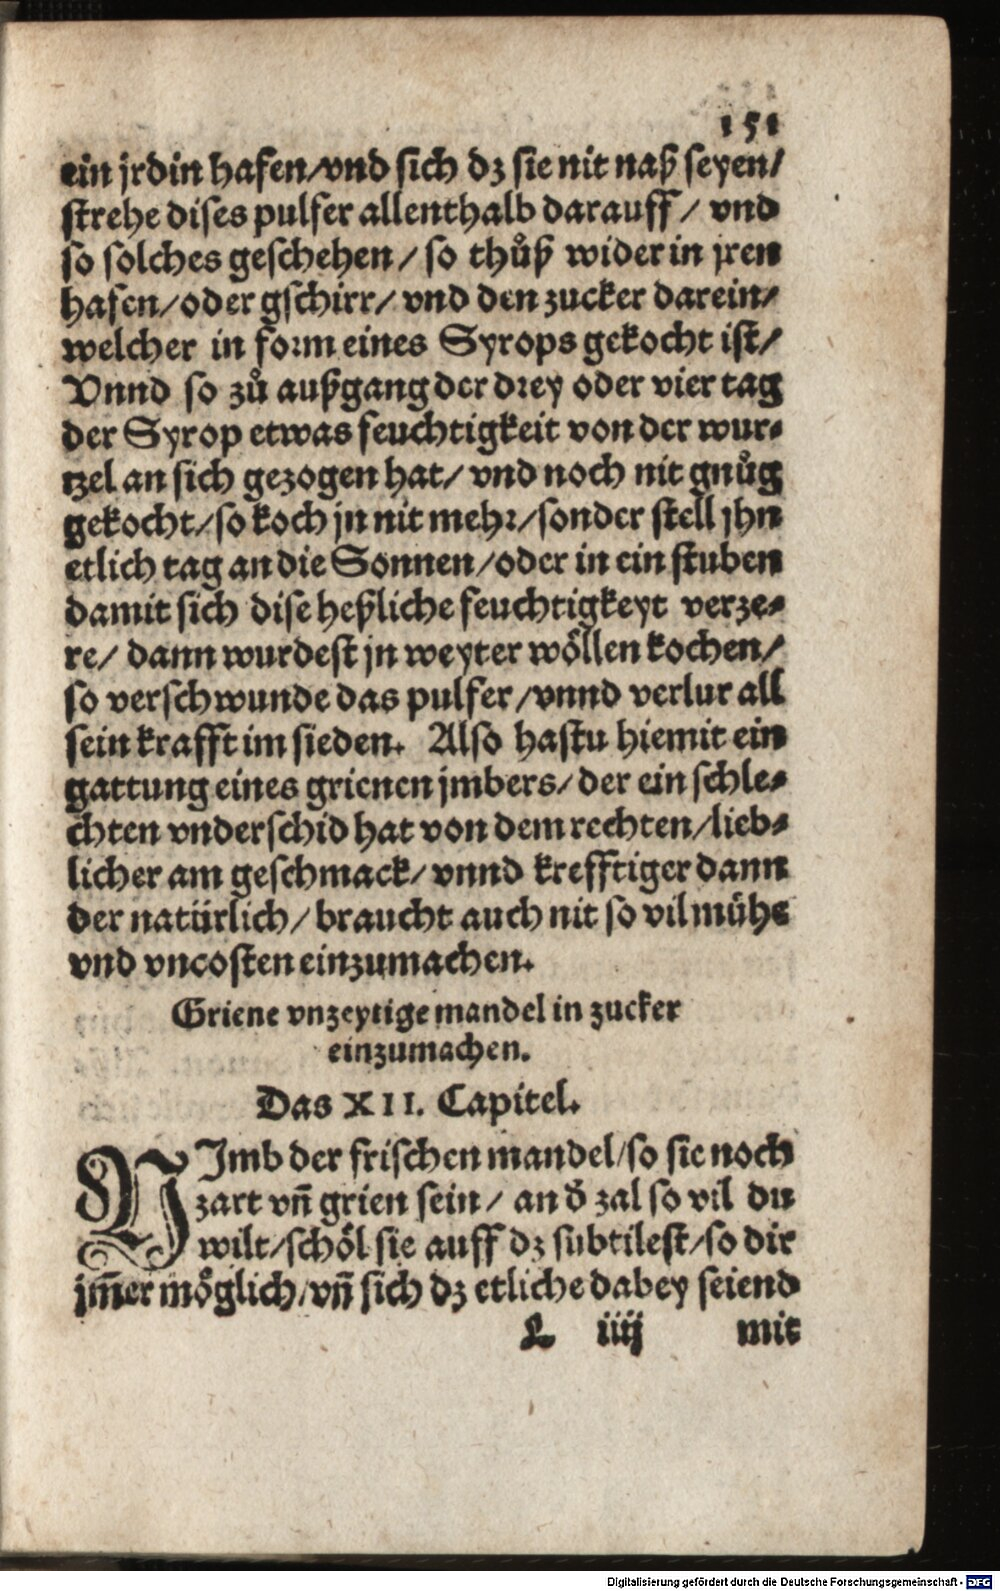 151
ein jrdin hafen/vnd sich dz sie nit naß seyen/
strehe dises pulfer allenthalb darauff/ vnd
so solches geschehen/ so thůß wider in jren
hafen/oder gschirr/ vnd den zucker darein/
welcher in form eines Syrops gekocht ist/
Vnnd so zů außgang der drey oder vier tag
der Syrop etwas feuchtigkeit von der wur-
tzel an sich gezogen hat/ vnd noch nit gnůg
gekocht/so koch jn nit mehr/sonder stell jhn
etlich tag an die Sonnen/oder in ein stuben
damit sich dise heßliche feuchtigkeyt verze-
re/ dann wurdest jn weyter wöllen kochen/
so verschwunde das pulfer/vnnd verlur all
sein krafft im sieden. Also hastu hiemit ein
gattung eines grienen jmbers/der ein schle-
chten vnderschid hat von dem rechten/lieb-
licher am geschmack/vnnd krefftiger dann
der natürlich/ braucht auch nit so vil mühe
vnd vncosten einzumachen.
Griene vnzeytige mandel in zucker
einzumachen.
Das XII. Capitel.
NImb der frischen mandel/so sie noch
zart vñ grien sein/ an d̊ zal so vil du
wilt/schöl sie auff dz subtilest/so dir
jm̃er möglich/vñ sich dz etliche dabey seiend
L iiij mit
Digitalisierung gefördert durch die Deutsche Forschungsgemeinschaft - DFG